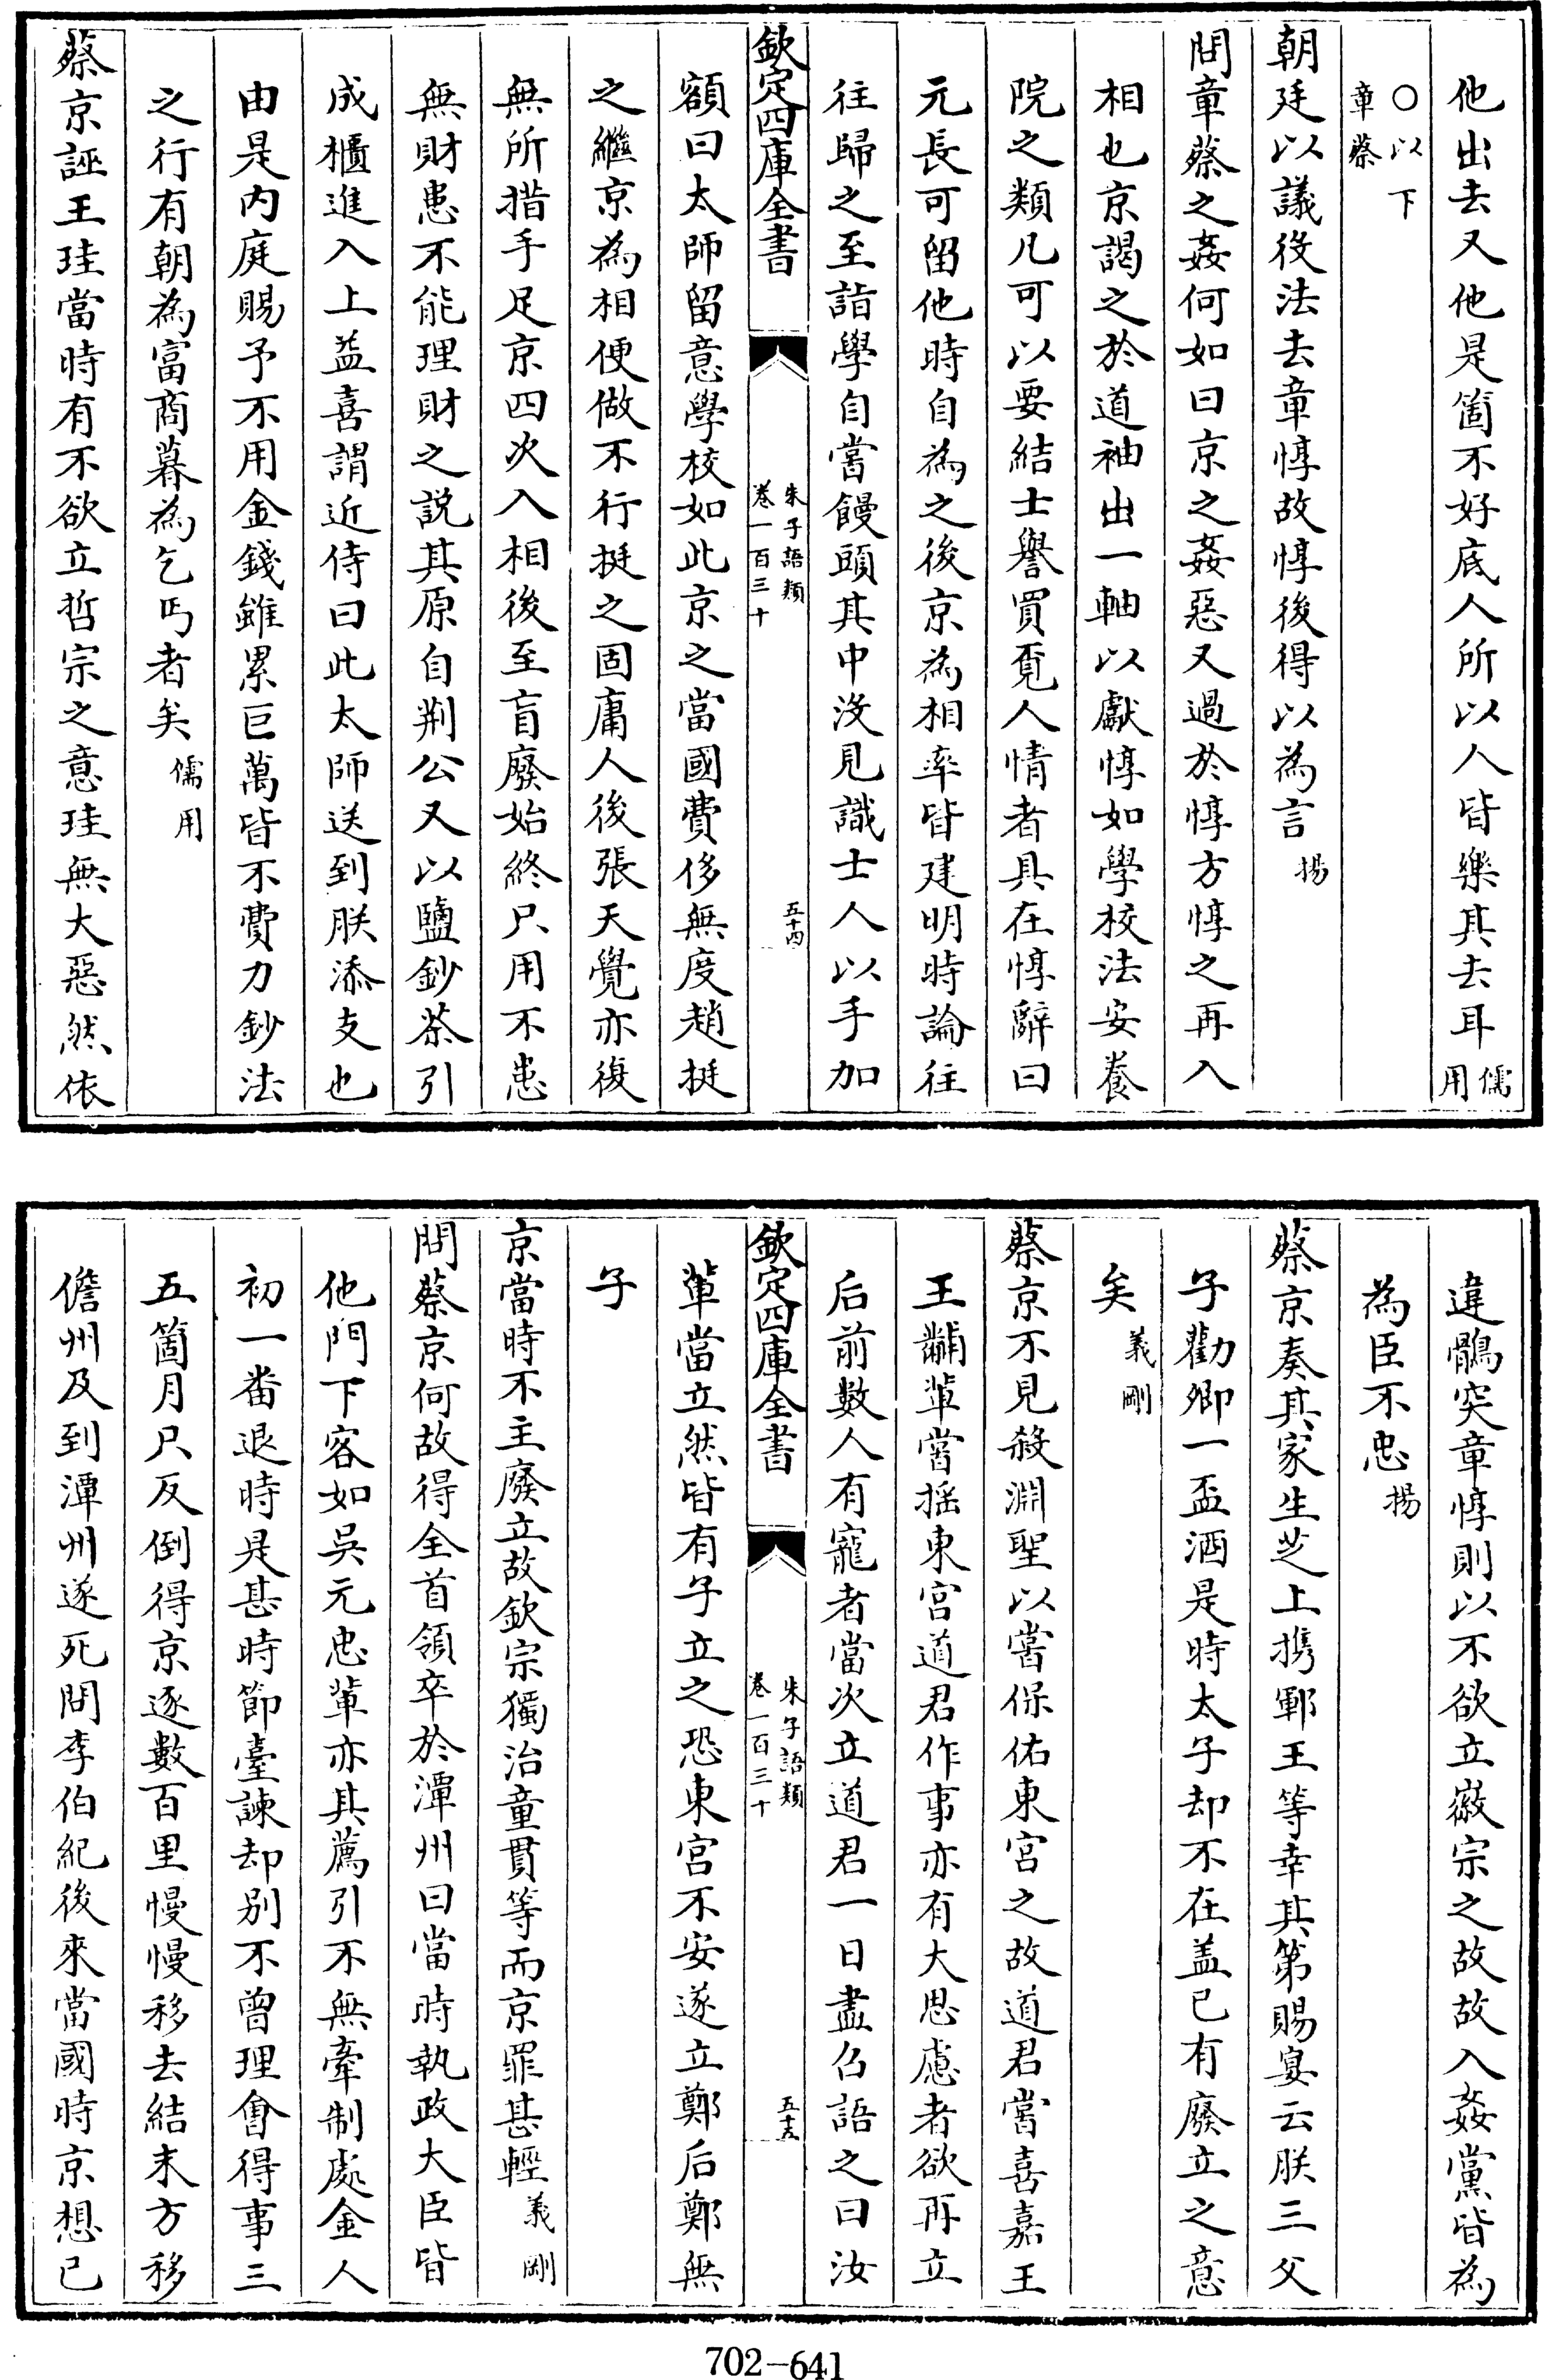 他出去又他是箇不好底人所以人皆樂其去耳儒用
○以下章蔡
朝廷以議役法去章惇故惇後得以為言揚
問章蔡之姦何如曰京之姦惡又過於惇方惇之再入
相也京謁之於道袖出一軸以獻惇如學校法安養
院之類凡可以要結士譽買覔人情者具在惇辭曰
元長可留他時自為之後京為相率皆建明時論往
往歸之至詣學自嘗饅頭其中沒見識士人以手加
欽定四庫全書
朱子語類
卷一百三十
五十四
額曰太師留意學校如此京之當國費侈無度趙挺
之繼京為相便做不行挺之固庸人後張天覺亦復
無所措手足京四次入相後至盲廢始終只用不患
無財患不能理財之説其原自荆公又以鹽鈔茶引
成櫃進入上益喜謂近侍曰此太師送到朕添支也
由是内庭賜予不用金錢雖累巨萬皆不費力鈔法
之行有朝為富商暮為乞丐者矣儒用
蔡京誣王珪當時有不欲立哲宗之意珪無大惡然依
違鶻突章惇則以不欲立徽宗之故故入姦黨皆為
為臣不忠揚
蔡京奏其家生芝上携鄆王等幸其第賜宴云朕三父
子勸卿一盃酒是時太子却不在盖已有廢立之意
矣義剛
蔡京不見殺淵聖以嘗保佑東宫之故道君嘗喜嘉王
王黼輩嘗揺東宫道君作事亦有大思慮者欲再立
后前數人有寵者當次立道君一日盡召語之曰汝
欽定四庫全書
朱子語類
卷一百三十
五十五
輩當立然皆有子立之恐東宫不安遂立鄭后鄭無
子
京當時不主廢立故欽宗獨治童貫等而京罪甚輕義剛
問蔡京何故得全首領卒於潭州曰當時執政大臣皆
他門下客如吳元忠輩亦其薦引不無牽制處金人
初一畨退時是甚時節臺諫却别不曾理會得事三
五箇月只反倒得京逐數百里慢慢移去結末方移
儋州及到潭州遂死問李伯紀後來當國時京想已
702-641